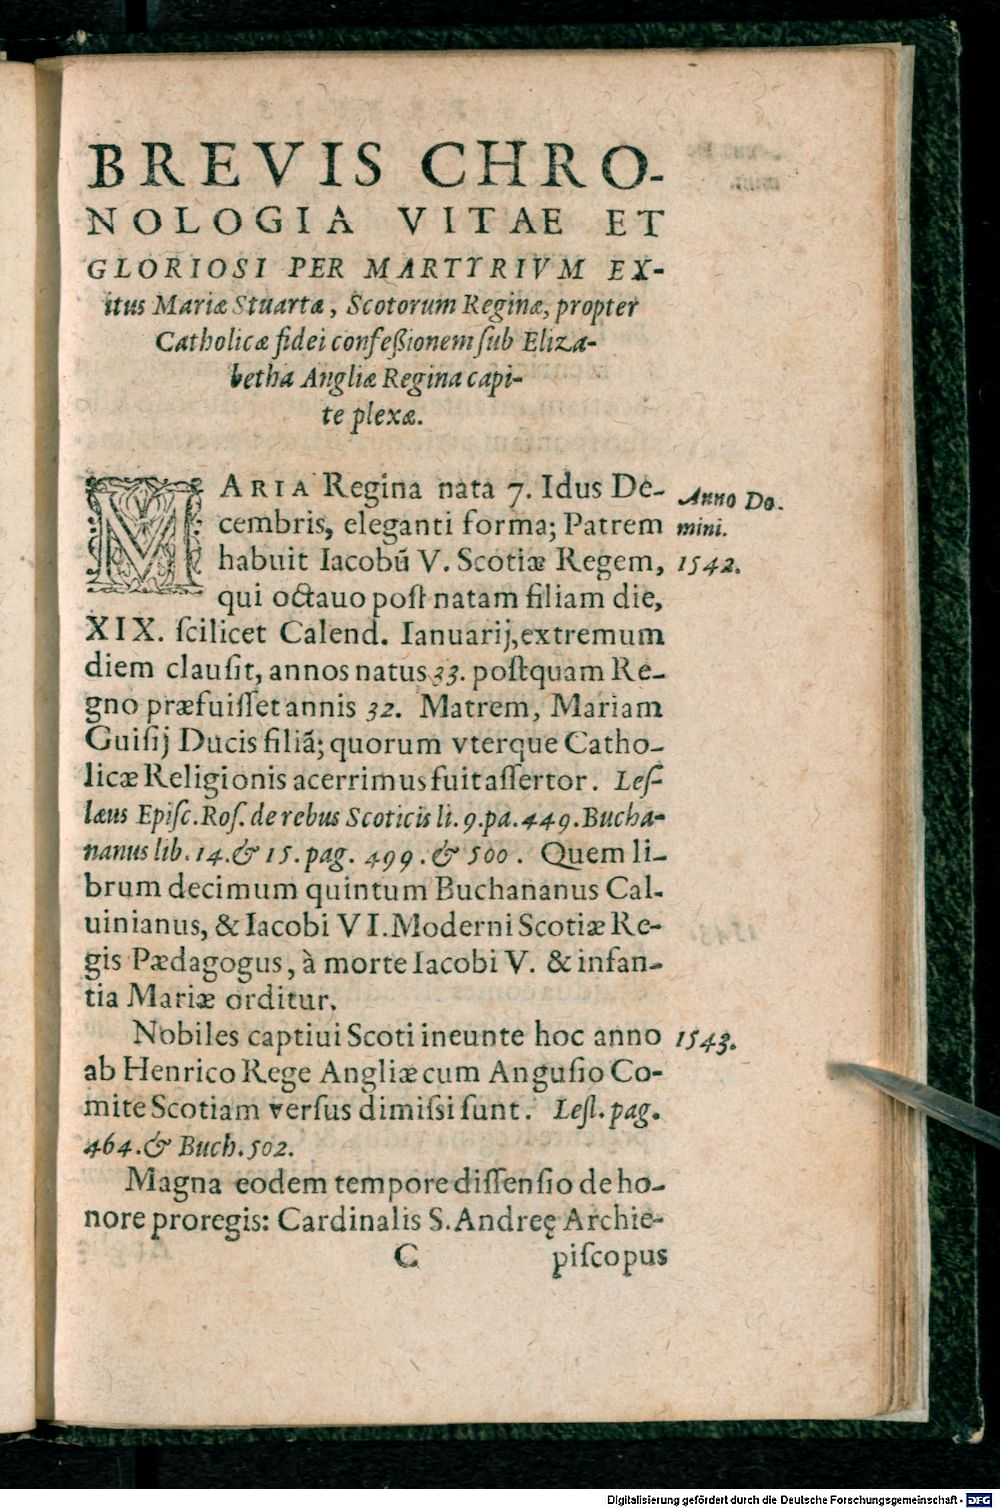 BREVIS CHRO-
NOLOGIA VITAE ET
GLORIOSI PER MARTYRIVM EX-
itus Mariæ Stuartæ, Scotorum Reginæ, propter
Catholicæ fidei confeßionem ſub Eliza-
betha Angliæ Regina capi-
te plexæ.
MARIA Regina nata 7. Idus De-
Anno Do.
cembris, eleganti forma; Patrem
mini.
habuit Iacobũ V. Scotiæ Regem,
1542.
qui octauo poſt natam filiam die,
XIX. ſcilicet Calend. Ianuarij, extremum
diem clauſit, annos natus 33. poſtquam Re-
gno præfuiſſet annis 32. Matrem, Mariam
Guiſij Ducis filiã; quorum vterque Catho-
licæ Religionis acerrimus fuit aſſertor. Leſ-
læus Epiſc. Roſ. de rebus Scoticis li. 9. pa. 449. Bucha-
nanus lib. 14. & 15. pag. 499. & 500. Quem li-
brum decimum quintum Buchananus Cal-
uinianus, & Iacobi VI. Moderni Scotiæ Re-
gis Pædagogus, à morte Iacobi V. & infan-
tia Mariæ orditur.
Nobiles captiui Scoti ineunte hoc anno
1543.
ab Henrico Rege Angliæ cum Anguſio Co-
mite Scotiam verſus dimiſsi ſunt. Leſl. pag.
464. & Buch. 502.
Magna eodem tempore diſſenſio de ho-
nore proregis: Cardinalis S. Andreę Archie-
C piſcopus
Digitalisierung gefördert durch die Deutsche Forschungsgemeinschaft - DFG